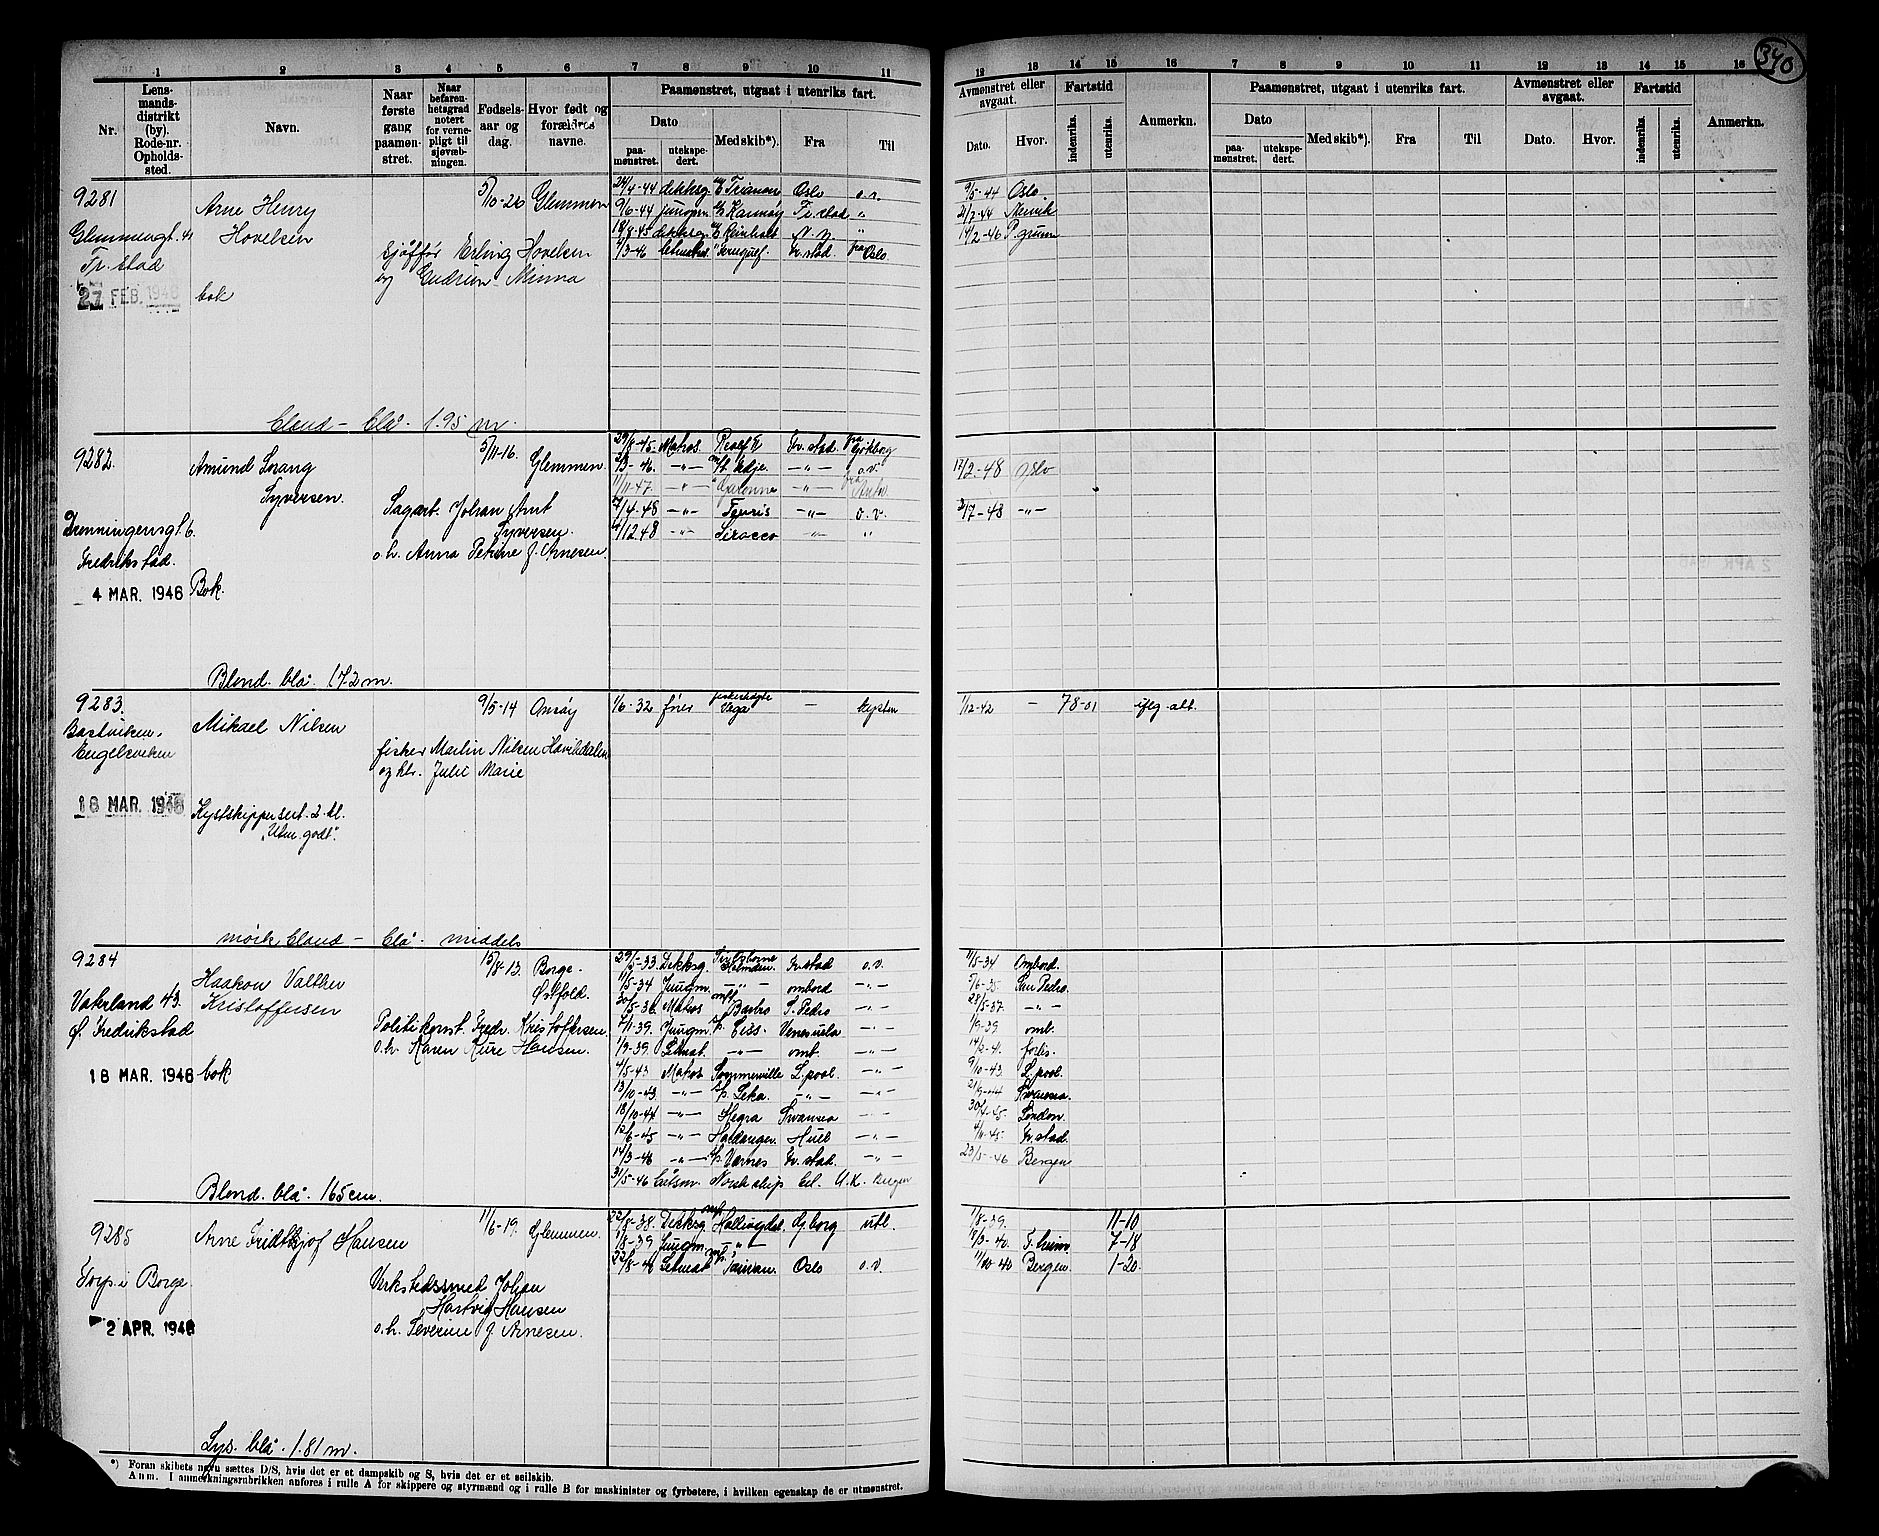 340
1 2 3 4 5 6 7 8 9 10 11
Nr. Lensmandsdistrikt (by). Rode-nr. Opholdssted.
Navn.
Naar første gang paamønstret.
Naar befarenhetsgrad notert for vernepligt til sjøvæbningen.
Fødselsaar og dag.
Hvor født og forældres navne.
Paamønstret, utgaat i utenriks fart.
Dato
paamønstret. utekspedert. Med skib*). Fra Til
12 13 14 15 16 7 8 9 10 11 12 13 14 15 16
Avmønstret eller avgaat. Fartstid
Dato. Hvor. indenriks. utenriks. Anmerkn.
Paamønstret, utgaat i utenriks fart. Avmønstret eller avgaat. Fartstid
Dato
paamønstret. utekspedert. Med skib*). Fra Til Dato. Hvor. indenriks. utenriks. Anmerkn.
9281 Arne Henry Hovelsen 5/10-20 Glemmen
Glemmengt. 41
Fr. stad
Sjåffør Erling Hovelsen
og Gudrun Minna
27 FEB. 1946 bok
24/4-44 dekksg. Trianon Oslo o.v. 9/5-44 Oslo
9/6-44 jungm. Karmøy Fr. stad " 21/7-44
18/8-45 N.N. " 14/2-46 P.grunn
/3-46 Fr. stad fra Oslo
Bland - blå. 1.95 m.
9282 Amund Svang Syversen. 5/11-16. Glemmen.
Dronningensgt. 6.
Fredrikstad.
Sagarb. Johan Arnt Syversen.
o.h. Anna Petrine f. Arnesen.
4 MAR. 1946 Bok.
29/8-45. Matros Rolf II Fr. stad fra Gøtborg
2/3-46. -"- -"- o.v. 17/2-48 Oslo
11/11-47. -"- Garonne -"- fra
2/4-48 -"- Fenris -"- o.v. 3/7-48 -"-
4/12 48 -"- Sirocco -"- "
Blond. blå. 172 m.
9283. Mikael Nilsen 9/5-14 Onsøy
Engelsviken
fisker Martin Nilsen
og h. Julie Marie
18 MAR. 1946 Kystskippersert. 2. kl.
"Utm. godt".
1/6-32 fisker Vega - kysten 1/12-42 - 78-01 ifølg. att.
mørk bland - blå. middels
9284 Haakon Valther Kristoffersen 15/8-13. Borge. Østfold.
Vaterland 43.
Ø. Fredrikstad
Politikonst. Fredr. Kristoffersen
o.h. Karen Hansen.
18 MAR. 1946 bok
29/5-33. Dekksg. Heimden. Fr. stad o.v. 11/5-34 Ombord.
11/5-34 Jungm. -"- ombord -"- 5/6-35 San Pedro.
30/5-36. Matros Barbro S. Pedro -"- 28/5-37. -"-
7/1-39. Jungm. Venezuela -"- 1/9-39 omb.
1/9-39. Letmat. -"- omb. -"- 14/2-41. forlis.
4/5-43 Matros Sommerville L.pool. -"- 9/10-43. L.pool.
13/10-43. -"- Leka. -"- -"- 21/9-44 Swansea.
18/10-44 -"- Hegra Swansea -"- 30/4-45. London.
12/6-45 -"- Hardanger. Hull -"- 4/11-45. Fr. stad.
14/3-46 -"- Værnes Fr. stad. -"- 23/5-46 Bergen
31/5-46 Båtsm. Norsk skip U.K. Bergen
Blond. blå. 165 cm.
9285 Arne Fridtkjof Hansen 11/6-19. Glemmen.
Torp i Borge.
Verkstedssmed Johan
Hartvig Hansen
o.h. Severine f. Arnesen.
2 APR. 1946
22/8-38. Dekksg. Hallingdal. Gj.borg utl. 1/8-39. 11-10
1/8-39 Jungm. -"- 18/3-40. T.heim 7-18
22/8-40 Letmat. Taiwan. Oslo o.v. 11/10-40 Bergen. 1-20
Lys. blå. 1.81 m.
*) Foran skibets navn sættes D/S, hvis det er et dampskib og S, hvis det er et seilskib.
Anm. I anmerkningsrubrikken anføres i rulle A for skippere og styrmænd og i rulle B for maskinister og fyrbøtere, i hvilken egenskap de er utmønstret.